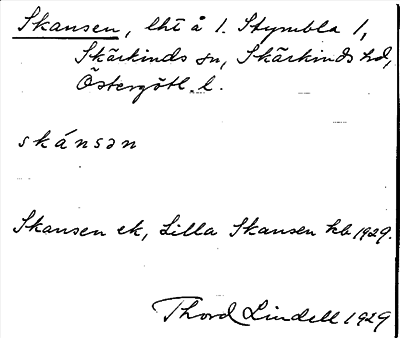 Skansen, lht å 1. Stymbla 1,
Skärkinds sn, Skärkinds hd,
Östergötl. l.
skánsən
Skansen ek, Lilla Skansen kb 1929.
Thord Lindell 1929